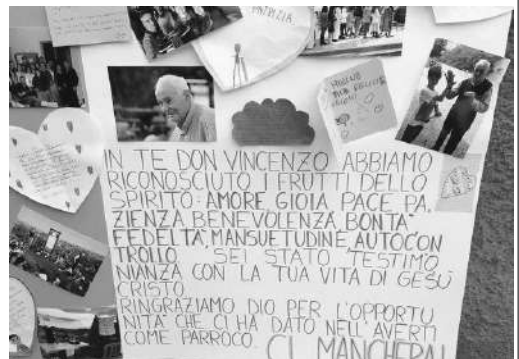 PATRIZIA,
IN TE DON VINCENZO ABBIAMO
RICONOSCIUTO I FRUTTI DELLO
SPIRITO: AMORE GIOIA PACE PA
ZIENZA BENEVOLENZA BONTA'
FEDELTA', MANSUETUDINE, AUTOCON
TROLLO. SEI STATO TESTIMO
NIANZA CON LA TUA VITA DI GESÙ
CRISTO.
RINGRAZIAMO DIO PER L'OPPORTU
NITA' CHE CI HA DATO NELL'AVERTI
COME PARROCO. CI MANCHERAI